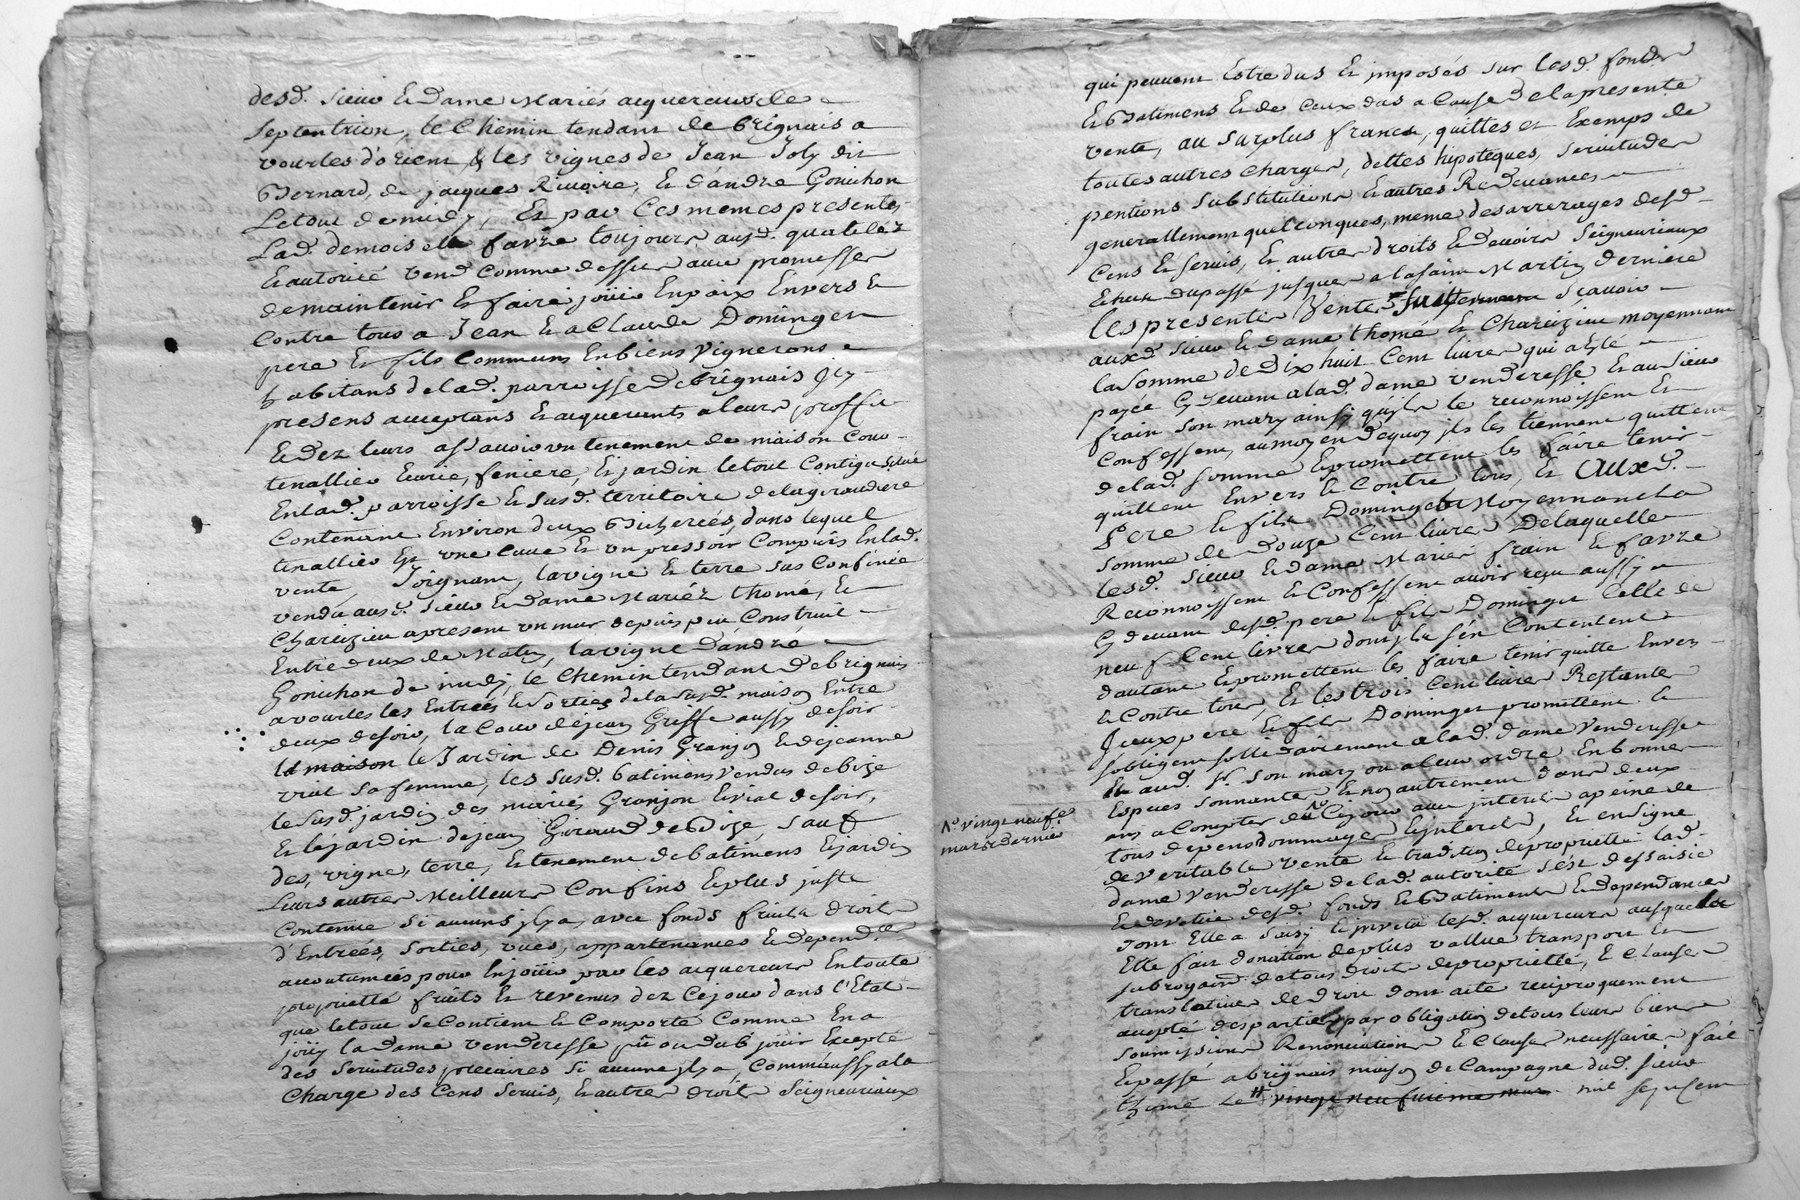 desd. sieur & dame mariés acquereurs de
septentrion, le chemin tendant de brignais a
vourles d'orient, & les vignes de Jean Joly dit
Bernard, de jacques Rivoire, & d'andré Gonichon
le tout de midy, Et par ces memes presentes
Lad. demoiselle favre toujours ausd. qualitez
& autorité vend comme dessus avec promesses
de maintenir & faire joüir en paix Envers &
contre tous a Jean & a Claude Dominget
pere & fils communs en biens vignerons
habitans de lad. parroisse de brignais Icy
presens acceptans & acquerants a leurs proffit
& des leurs assavoir un tenement de maison cour
tenallier Ecurie, feniere, & jardin le tout contigu situé
En lad. parroisse & susd. territoire de la giraudiere
contenant environ deux Bicherées, dans lequel
tenallier Est une cuve & un pressoir compris en lad.
vente, joignant, la vigne & terre sus confinée
vendu ausd. sieur & dame mariéz thomé, &
Charezieu a present un mur depuis peu construit
Entre deux de matin, la vigne d'andré
Gonichon de midy, le chemin tendant de brignais
a vourles les Entrées & sorties de la susd. maison Entre
deux de soir, la cour de jean Griffe aussy de soir
la maison le Jardin de Denis Granjon & de jeanne
vial sa femme, les susd. batimens vendus de bize
le susd. jardin des mariés Granjon & vial de soir,
Et le jardin de jean Giraud de Bize, sauf
des, vigne, terre, & tenement de batimens & jardin
Leurs autres meilleurs confins & plus juste
contenue si aucuns il y a, avec fonds fruits droits
d'Entrées, sorties, vues, appartenances & depend.ces
accoutumées pour En joüir par les acquereurs En toute
proprieté fruits & revenus dez ce jour dans l'Etat
que le tout se contient & comporte comme En a
joüy la dame venderesse pû ou dub joüir Excepté
des servitudes precaires si aucune il y a, comm'aussy a la
charge des Cens servis, & autres droits seigneuriaux
qui peuvent Estre dus & imposés sur lesd. fonds
& Batimens & de ceux dus a cause de la presente
vente, au surplus francs, quittes et Exemps de
toutes autres charges, dettes hipoteques, servitudes
pentions substitutions & autres Redevances
generallement quelconques, meme des arrerages desd.
Cens & servis, & autres droits & devoirs seigneuriaux
Echus du passé jusques a la saint Martin derniere
les presentes Ventes faittes sçavoir
auxd. sieur & dame thomé & Charezieu moyennant
la somme de Dix huit Cent livres qui a Eté
payée Cy devant a lad. dame venderesse & au sieur
frain son mary ainsi qu'ils le reconnoissent &
confessent, au moyen de quoy ils les tiennent quittent
de lad. somme & promettent les faire tenir
quittent Envers & contre tous, Et Auxd.
Pere & fils Dominget Moyennant la
somme de Douze Cent livres De laquelle
lesd. sieur & dame Mariés frain & favre
Reconnoissent & Confessent avoir reçu aussy
Cy devant desd. pere & fils Dominget Celle de
neuf Cent livres dont ils s'en contentent
d'autant & promettent les faire tenir quitte Envers
& contre tous, Et les trois Cent livres Restantes
Iceux pere & fils Dominget promettent &
s'obligent sollidairement a lad. dame venderesse
& aud. Sr. son mary ou a leur ordre En bonnes
Especes sonnantes & non autrement dans deux
ans a compter de Ce jour avec interets a peine de
tous depens dommages & interets, Et en signe
de veritable vente & tradition de proprieté lad.
dame venderesse de lad. autorité s'est dessaisie
& devetüe desd. fonds & Batiments & dependances
dont Elle a saisi & investi lesd. acquereurs ausquels
Elle fait donation de plus vallue transport &
subrogation de tous droits de proprieté, & clauses
translatives de droit dont acte reciproquement
accepté des parties par obligation de tous leurs biens
soumissions Renonciations & Clauses necessaires fait
& passé a brignais maison de Campagne dud. sieur
thomé Le # vingt neufvieme mars mil sept cent
No vingt neufe
mars dernier